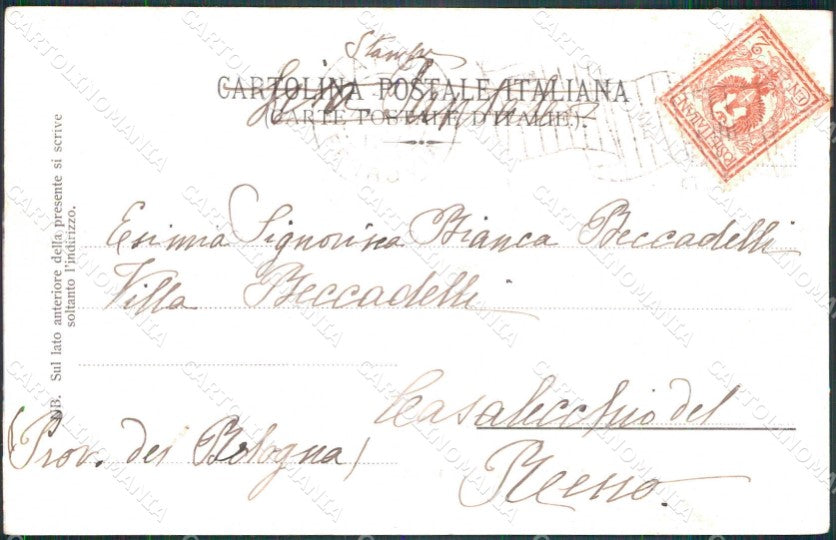 Stampe
CARTOLINA POSTALE ITALIANA
(CARTE POSTALE D'ITALIE).
2
CEN
POSTE ITALIANE
NB. Sul lato anteriore della presente si scrive
soltanto l'indirizzo.
Esimia Signorina Bianca Beccadelli
Villa Beccadelli
Casalecchio del
Reno.
(Prov. di Bologna)
CARTOLINOMANIA